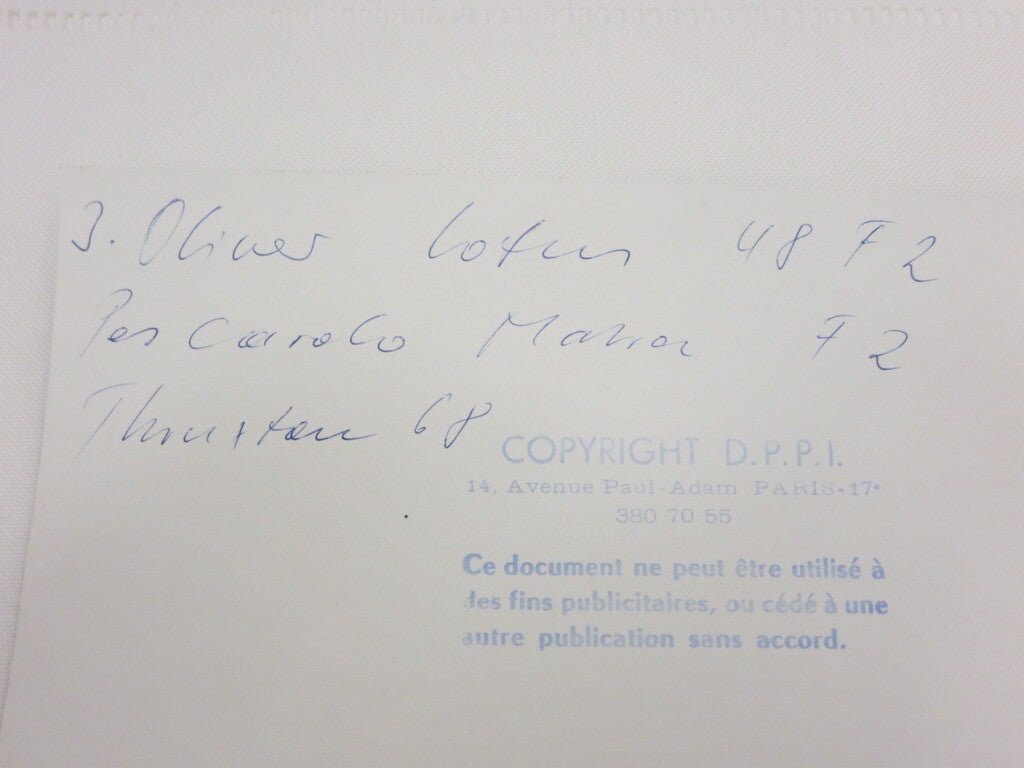 J. Oliver Lotus 48 F2
Pescarolo Matra F2
Thruxton 68
COPYRIGHT D.P.P.I.
14, Avenue Paul-Adam PARIS-17e
380 70 55
Ce document ne peut être utilisé à
des fins publicitaires, ou cédé à une
autre publication sans accord.